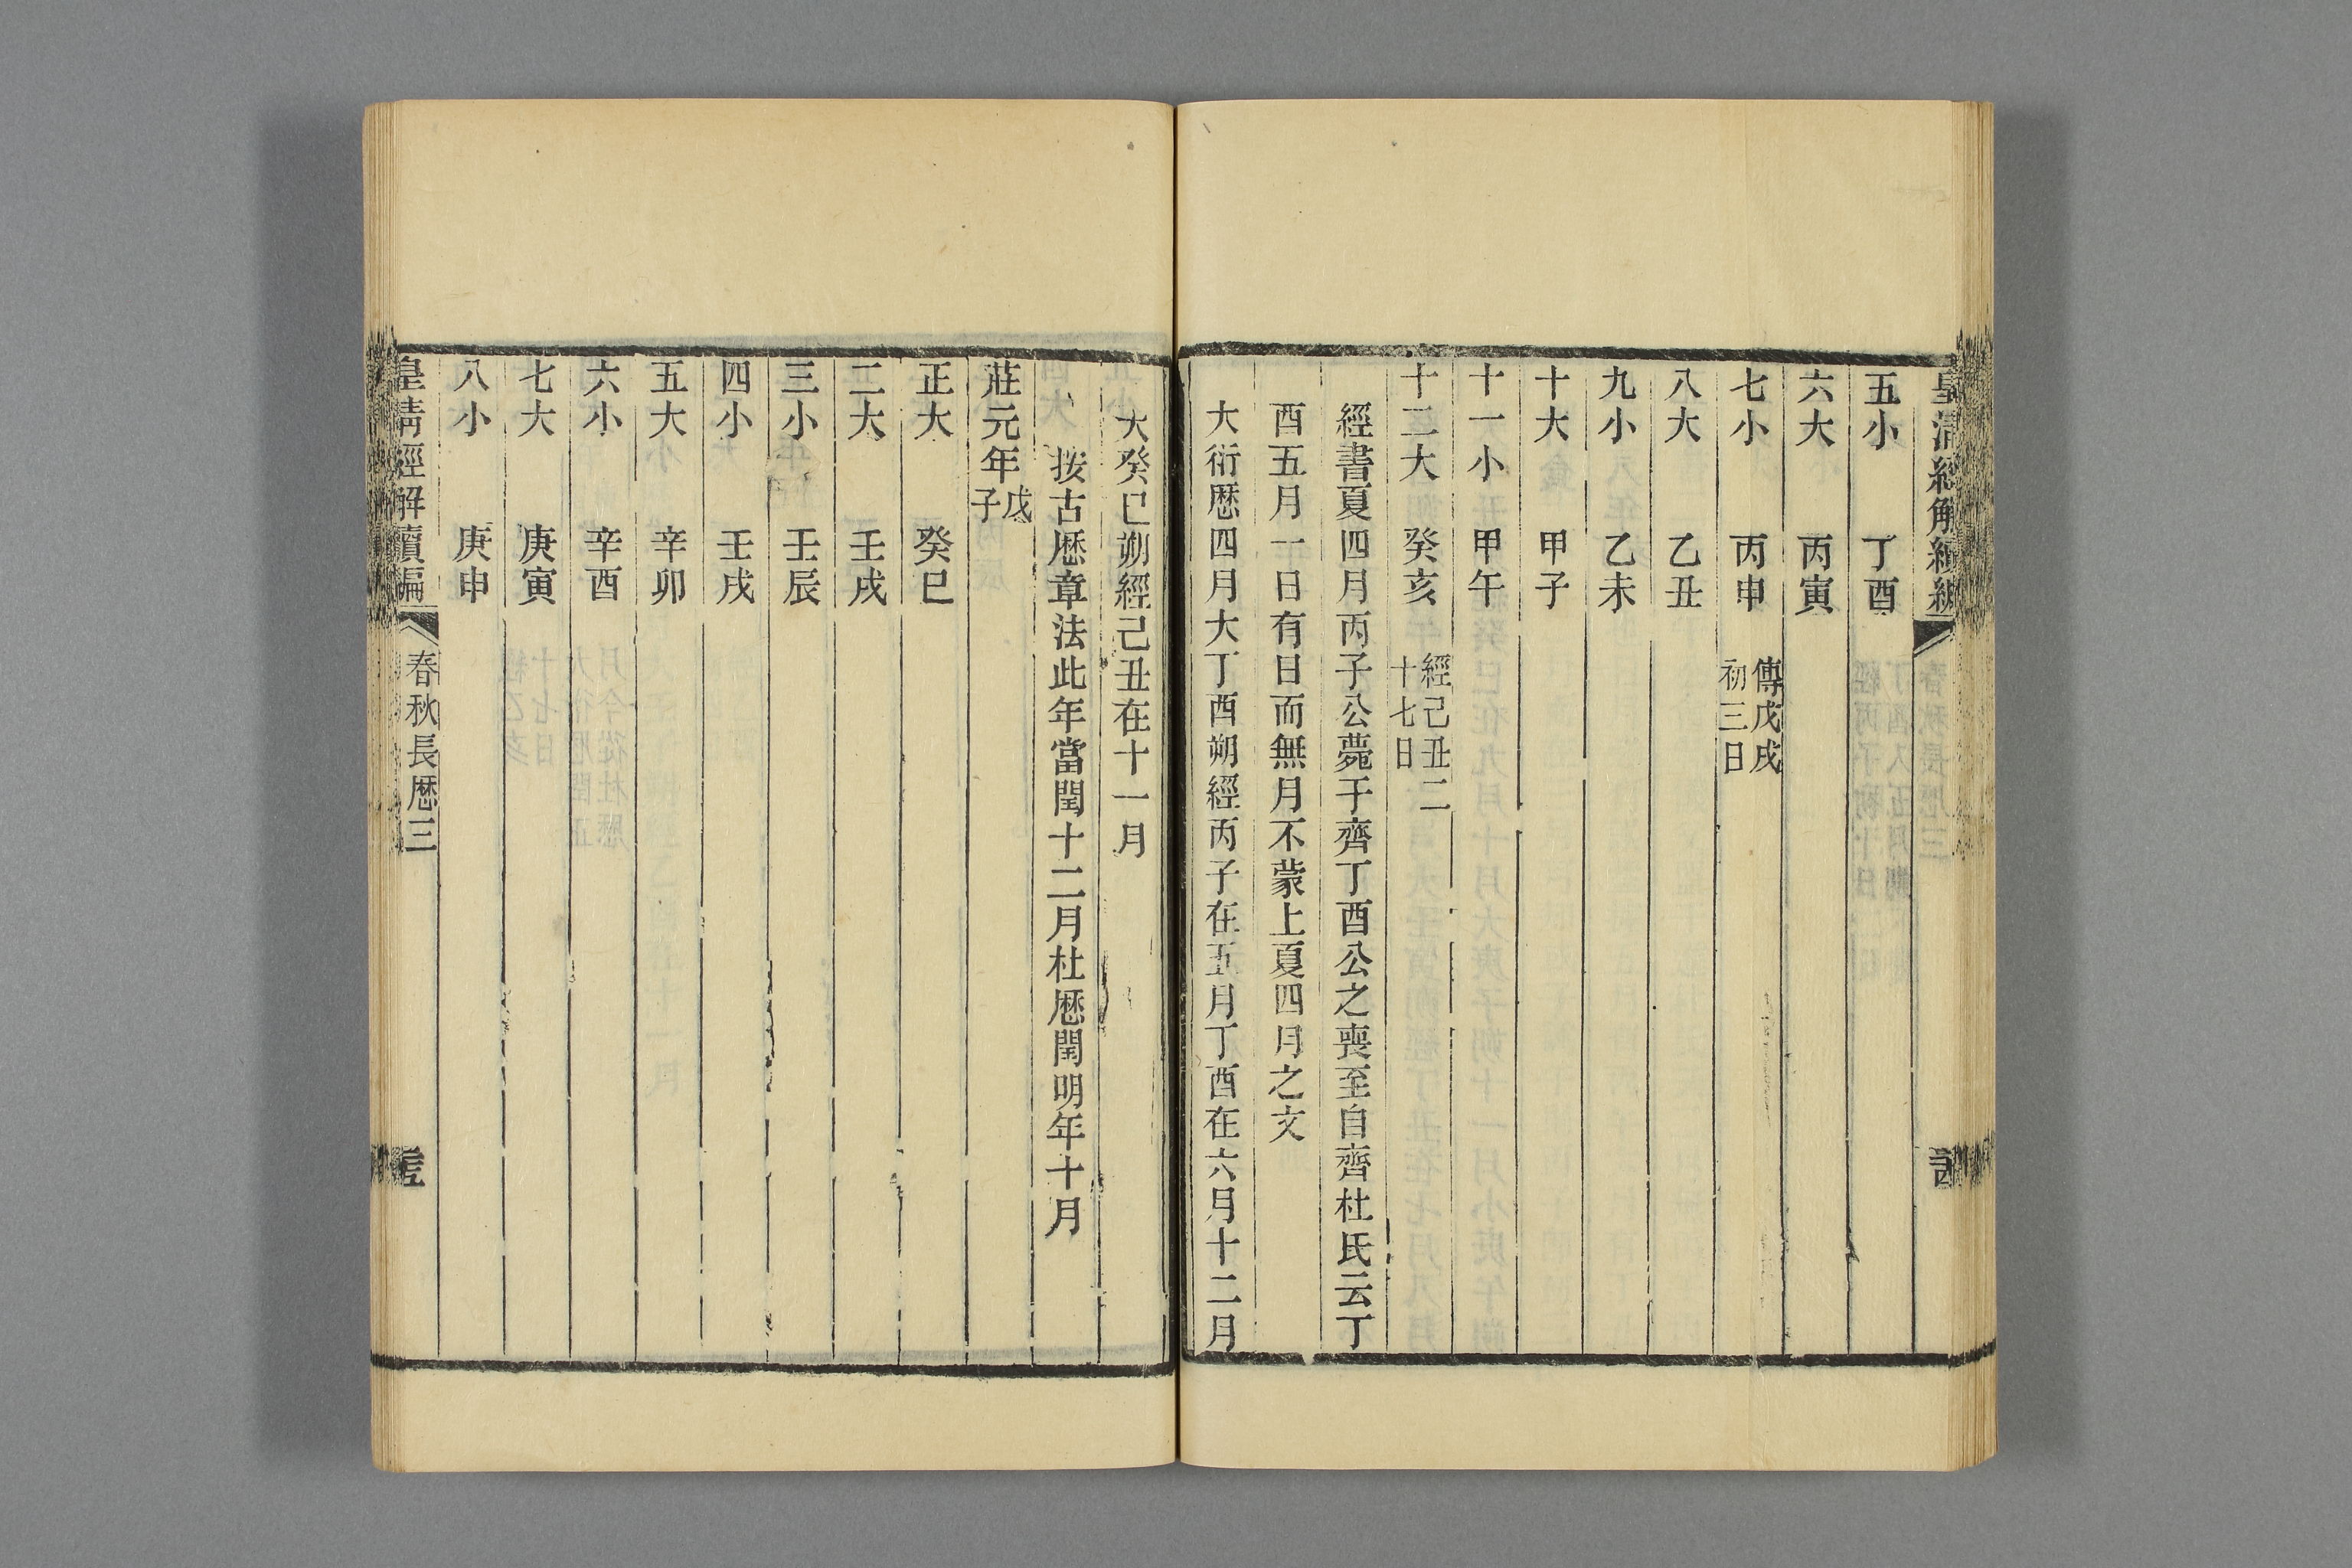 皇清經解續編
五小 丁酉
六大 丙寅
七小 丙申 傳戊戌初三日
八大 乙丑
九小 乙未
十大 甲子
十一小 甲午
十二大 癸亥 經己丑二十七日
經書夏四月丙子公薨于齊丁酉公之喪至自齊杜氏云丁
酉五月一日有日而無月不蒙上夏四月之文
大衍厯四月大丁酉朔經丙子在五月丁酉在六月十二月
大癸巳朔經己丑在十一月
按古厯章法此年當閏十二月杜厯閏明年十月
莊元年戊子
正大 癸巳
二大 壬戌
三小 壬辰
四小 壬戌
五大 辛卯
六小 辛酉
七大 庚寅
八小 庚申
皇清經解續編 春秋長厯三